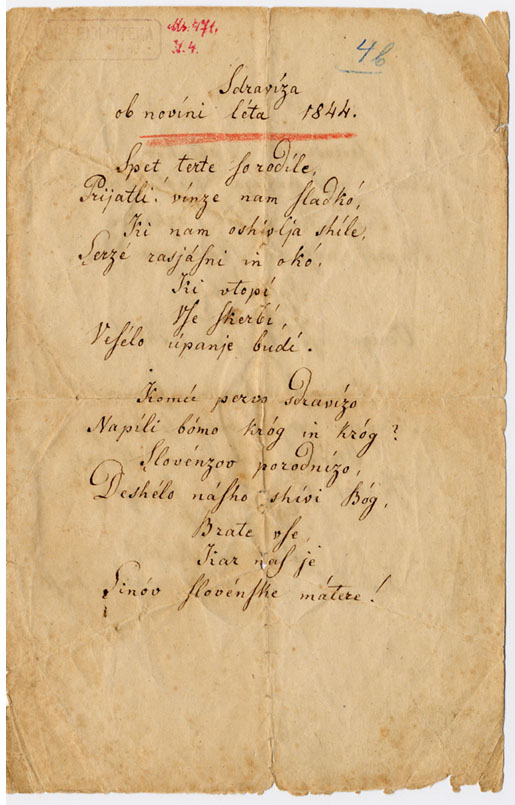 BIBLIOTEKA
Ms. 471,
N. 4.
4b
Sdravíza
ob novíni léta 1844.
Spet terte so rodíle,
Prijatli! vínze nam sladkó,
Ki nam oshívlja shíle,
Serzé rasjásni in okó,
Ki vtopí
Vse skerbí,
Vesélo úpanje budí.
Komú pervo sdravízo
Napíli bómo króg in króg?
Slovénzov porodnízo,
Deshélo násho shívi Bóg,
Brate vse,
Kar nas je
Sinóv slovénske mátere!